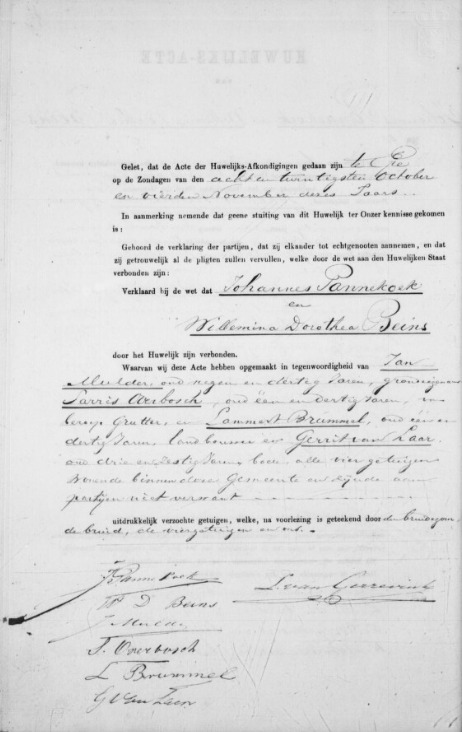 Gelet, dat de Acte der Huwelijks-Afkondigingen gedaan zijn te Ede
op de Zondagen van den acht en twintigsten October
en vierden November dezes Jaars.
In aanmerking nemende dat geene stuiting van dit Huwelijk ter Onzer kennisse gekomen
is:
Gehoord de verklaring der partijen, dat zij elkander tot echtgenooten aannemen, en dat
zij getrouwelijk al de pligten zullen vervullen, welke door de wet aan den Huwelijken Staat
verbonden zijn:
Verklaard bij de wet dat Johannes Pannekoek
en
Willemina Dorothea Beins
door het Huwelijk zijn verbonden.
Waarvan wij deze Acte hebben opgemaakt in tegenwoordigheid van Jan
Mulder, oud negen en dertig Jaren,
Overbosch, oud een en dertig Jaren, van
beroep Grutter, en Lammert Brummel, oud
dertig Jaren, landbouwer en Gerrit van
oud drie en zestig Jaren, bode, alle vier getuigen
wonende binnen deze Gemeente en zijnde aan
partijen niet verwant
uitdrukkelijk verzochte getuigen, welke, na voorlezing is geteekend door de bruidegom,
de bruid, de vier getuigen en ons.
Pannekoek
W D Beins
J Mulder
T. Overbosch
L Brummel
G van